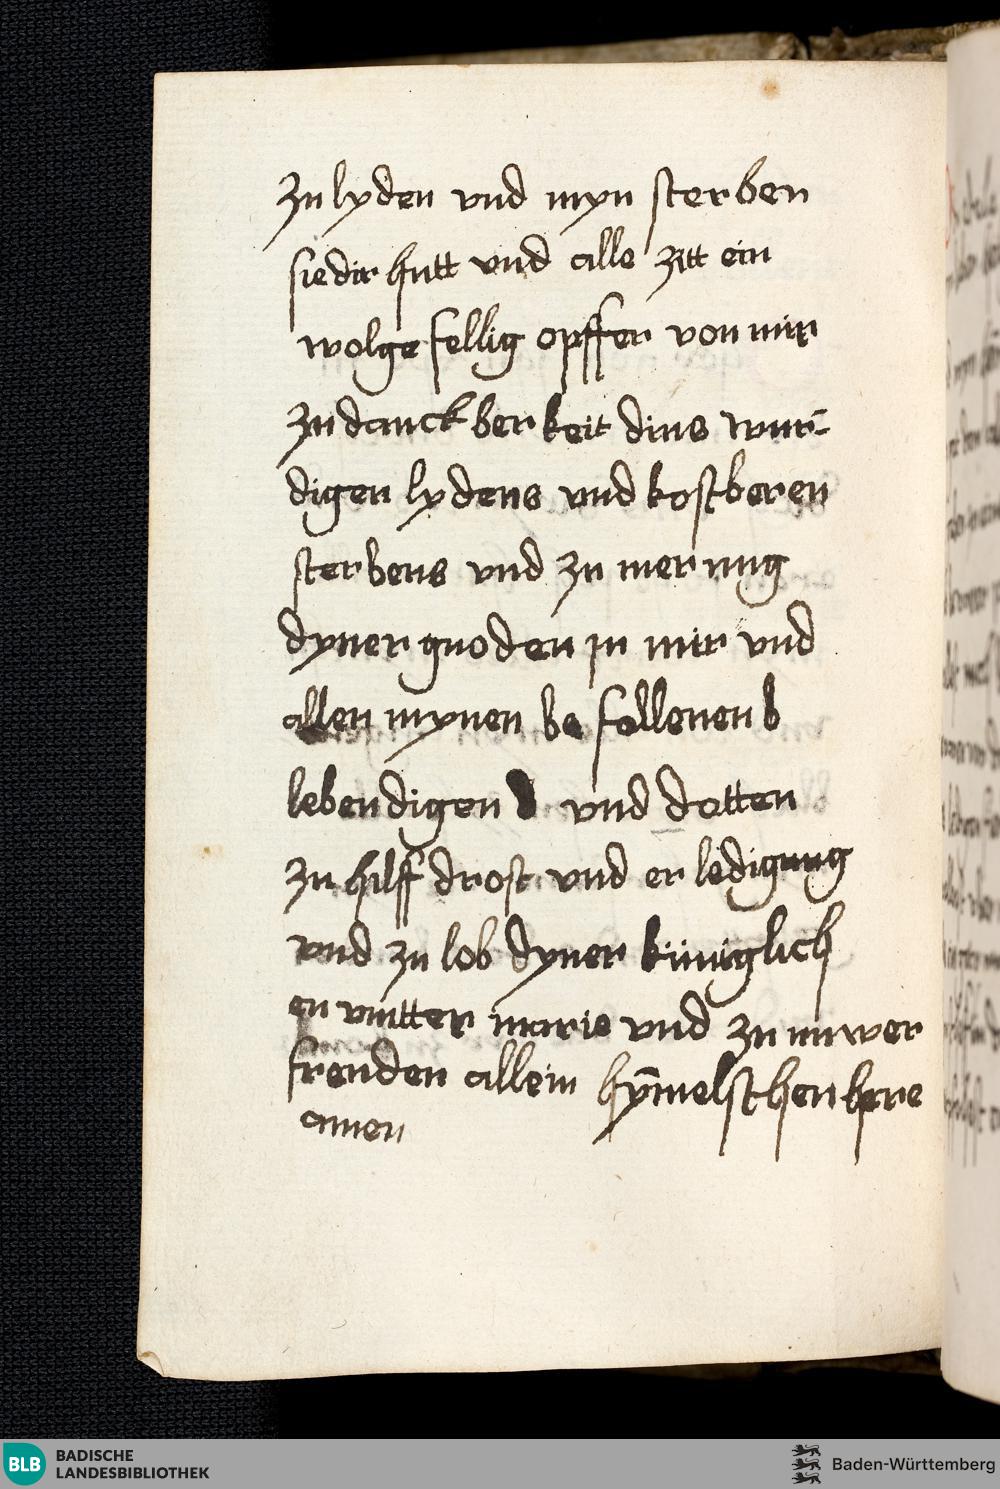 zu lyden vnd myn sterben
sie dir hutt vnd alle zitt ein
wolgefellig opffer von mir
zu danckberkeit dins wur-
digen lydens vnd kostberen
sterbens vnd zu merung
dyner gnoden jn mir vnd
allen mynen befollenen
lebendigen vnd dotten
zu hilff drost vnd erledigung
vnd zu lob dyner küniglich
en mutter marie vnd zu nuwer
freuden allem hȳmelschen here
amen
BLB BADISCHE
LANDESBIBLIOTHEK
Baden-Württemberg